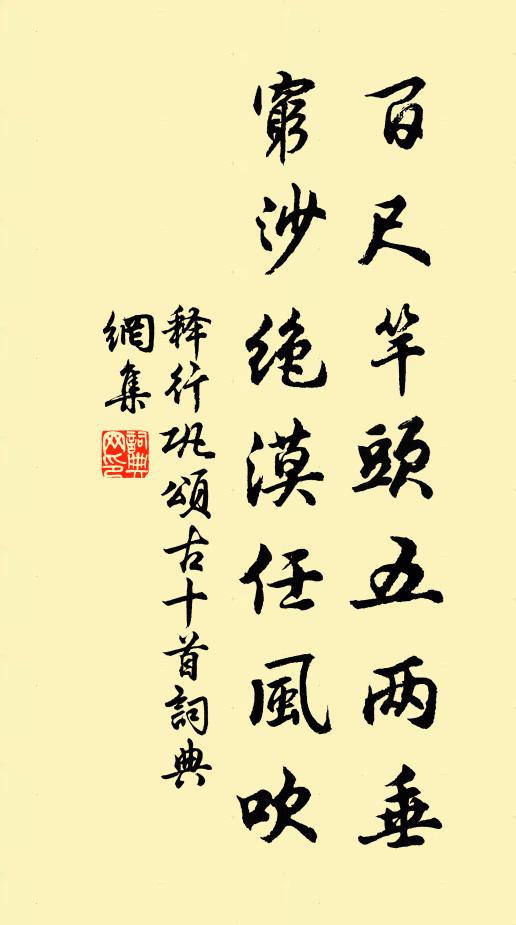 百尺竿頭五两垂
窮沙绝漠任風吹
释行巩頌古十首詞典
網集
詞典
网印